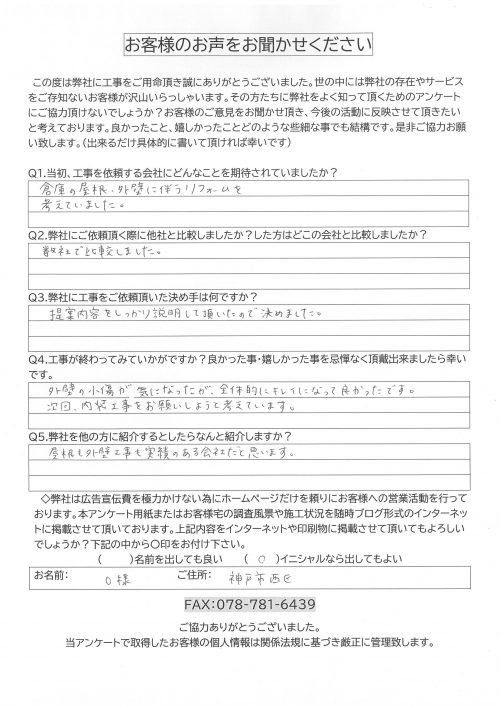 お客様のお声をお聞かせください
この度は弊社に工事をご用命頂き誠にありがとうございました。世の中には弊社の存在やサービス
をご存知ないお客様が沢山いらっしゃいます。その方たちに弊社をよく知って頂くためのアンケート
にご協力頂けないでしょうか？お客様のご意見をお聞かせ頂き、今後の活動に反映させて頂きたい
と考えております。良かったこと、嬉しかったことどのような些細な事でも結構です。是非ご協力お願
い致します。（出来るだけ具体的に書いて頂ければ幸いです）
Q1.当初、工事を依頼する会社にどんなことを期待されていましたか？
倉庫の屋根・外壁に伴うリフォームを
考えていました。
Q2.弊社にご依頼頂く際に他社と比較しましたか？した方はどこの会社と比較しましたか？
数社で比較しました。
Q3.弊社に工事をご依頼頂いた決め手は何ですか？
提案内容をしっかり説明して頂いたので決めました。
Q4.工事が終わってみていかがですか？良かった事・嬉しかった事を忌憚なく頂戴出来ましたら幸い
です。
外壁の小傷が気になったが、全体的にキレイになって良かったです。
次回、内装工事をお願いしようと考えています。
Q5.弊社を他の方に紹介するとしたらなんと紹介しますか？
屋根も外壁工事も実績のある会社だと思います。
◇弊社は広告宣伝費を極力かけない為にホームページだけを頼りにお客様への営業活動を行って
おります。本アンケート用紙またはお客様宅の調査風景や施工状況を随時ブログ形式のインターネッ
トに掲載させて頂いております。上記内容をインターネットや印刷物に掲載させて頂いてもよろしい
でしょうか？下記の中から〇印をお付け下さい。
（　　）名前を出しても良い　（ ○ ）イニシャルなら出してもよい
お名前： O様　ご住所： 神戸市西区
FAX：078-781-6439
ご協力ありがとうございました。
当アンケートで取得したお客様の個人情報は関係法規に基づき厳正に管理致します。